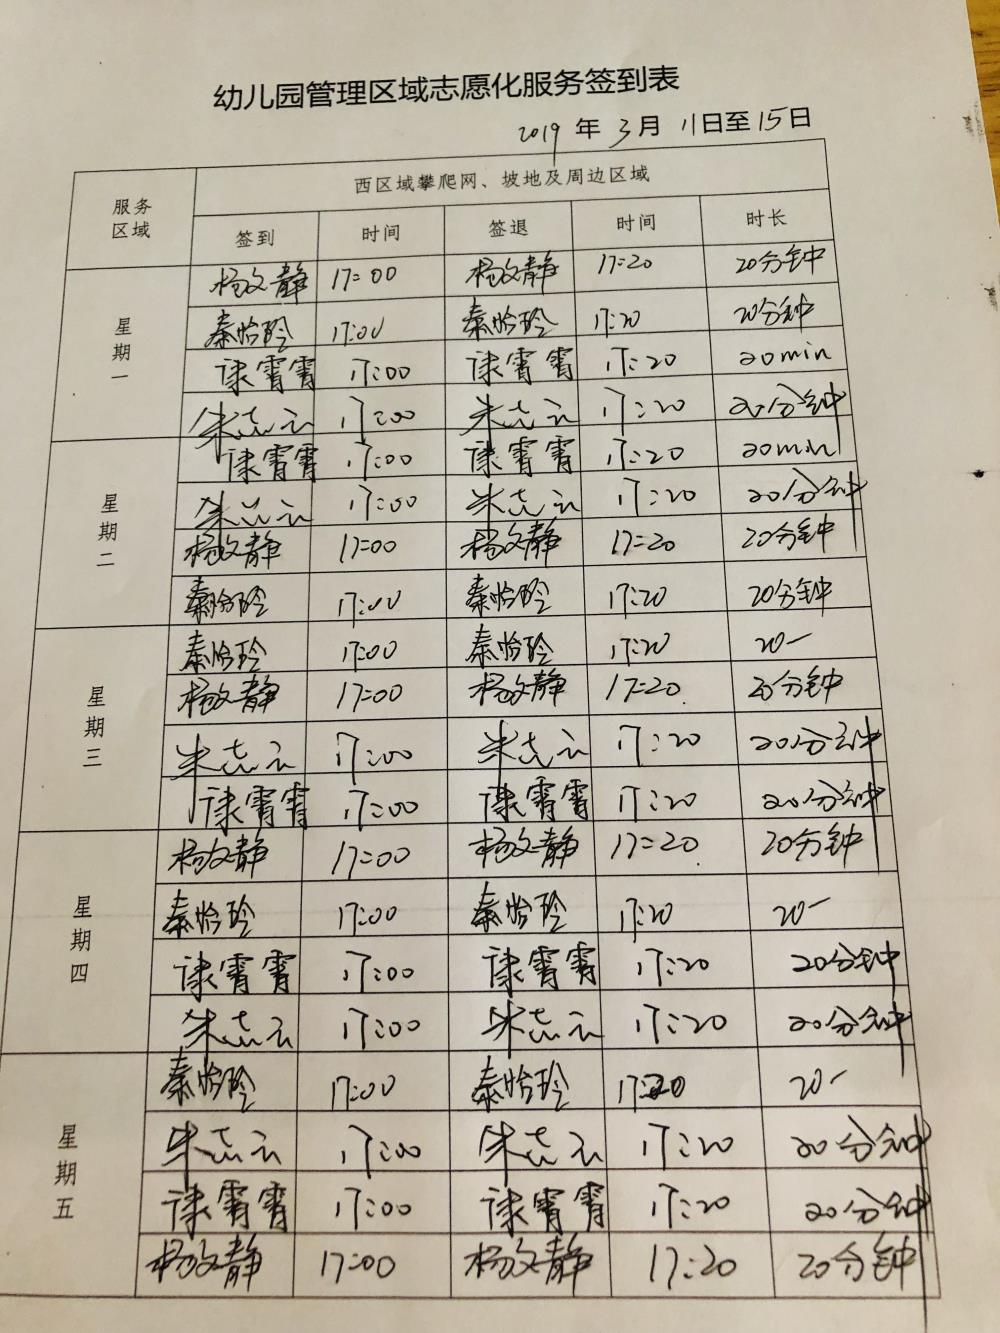 幼儿园管理区域志愿化服务签到表
2019 年 3 月 11日至15日
服务区域 西区域攀爬网、坡地及周边区域
签到 时间 签退 时间 时长
星期一 杨文静 17:00 杨文静 17:20 20分钟
秦怡玲 17:00 秦怡玲 17:20 20分钟
谏霄霄 17:00 谏霄霄 17:20 20min
朱志云 17:00 朱志云 17:20 20分钟
星期二 谏霄霄 17:00 谏霄霄 17:20 20min
朱志云 17:00 朱志云 17:20 20分钟
杨文静 17:00 杨文静 17:20 20分钟
秦怡玲 17:00 秦怡玲 17:20 20分钟
星期三 秦怡玲 17:00 秦怡玲 17:20 20一
杨文静 17:00 杨文静 17:20 20分钟
朱志云 17:00 朱志云 17:20 20分钟
谏霄霄 17:00 谏霄霄 17:20 20分钟
星期四 杨文静 17:00 杨文静 17:20 20分钟
秦怡玲 17:00 秦怡玲 17:20 20一
谏霄霄 17:00 谏霄霄 17:20 20分钟
朱志云 17:00 朱志云 17:20 20分钟
星期五 秦怡玲 17:00 秦怡玲 17:20 20一
朱志云 17:00 朱志云 17:20 20分钟
谏霄霄 17:00 谏霄霄 17:20 20分钟
杨文静 17:00 杨文静 17:20 20分钟